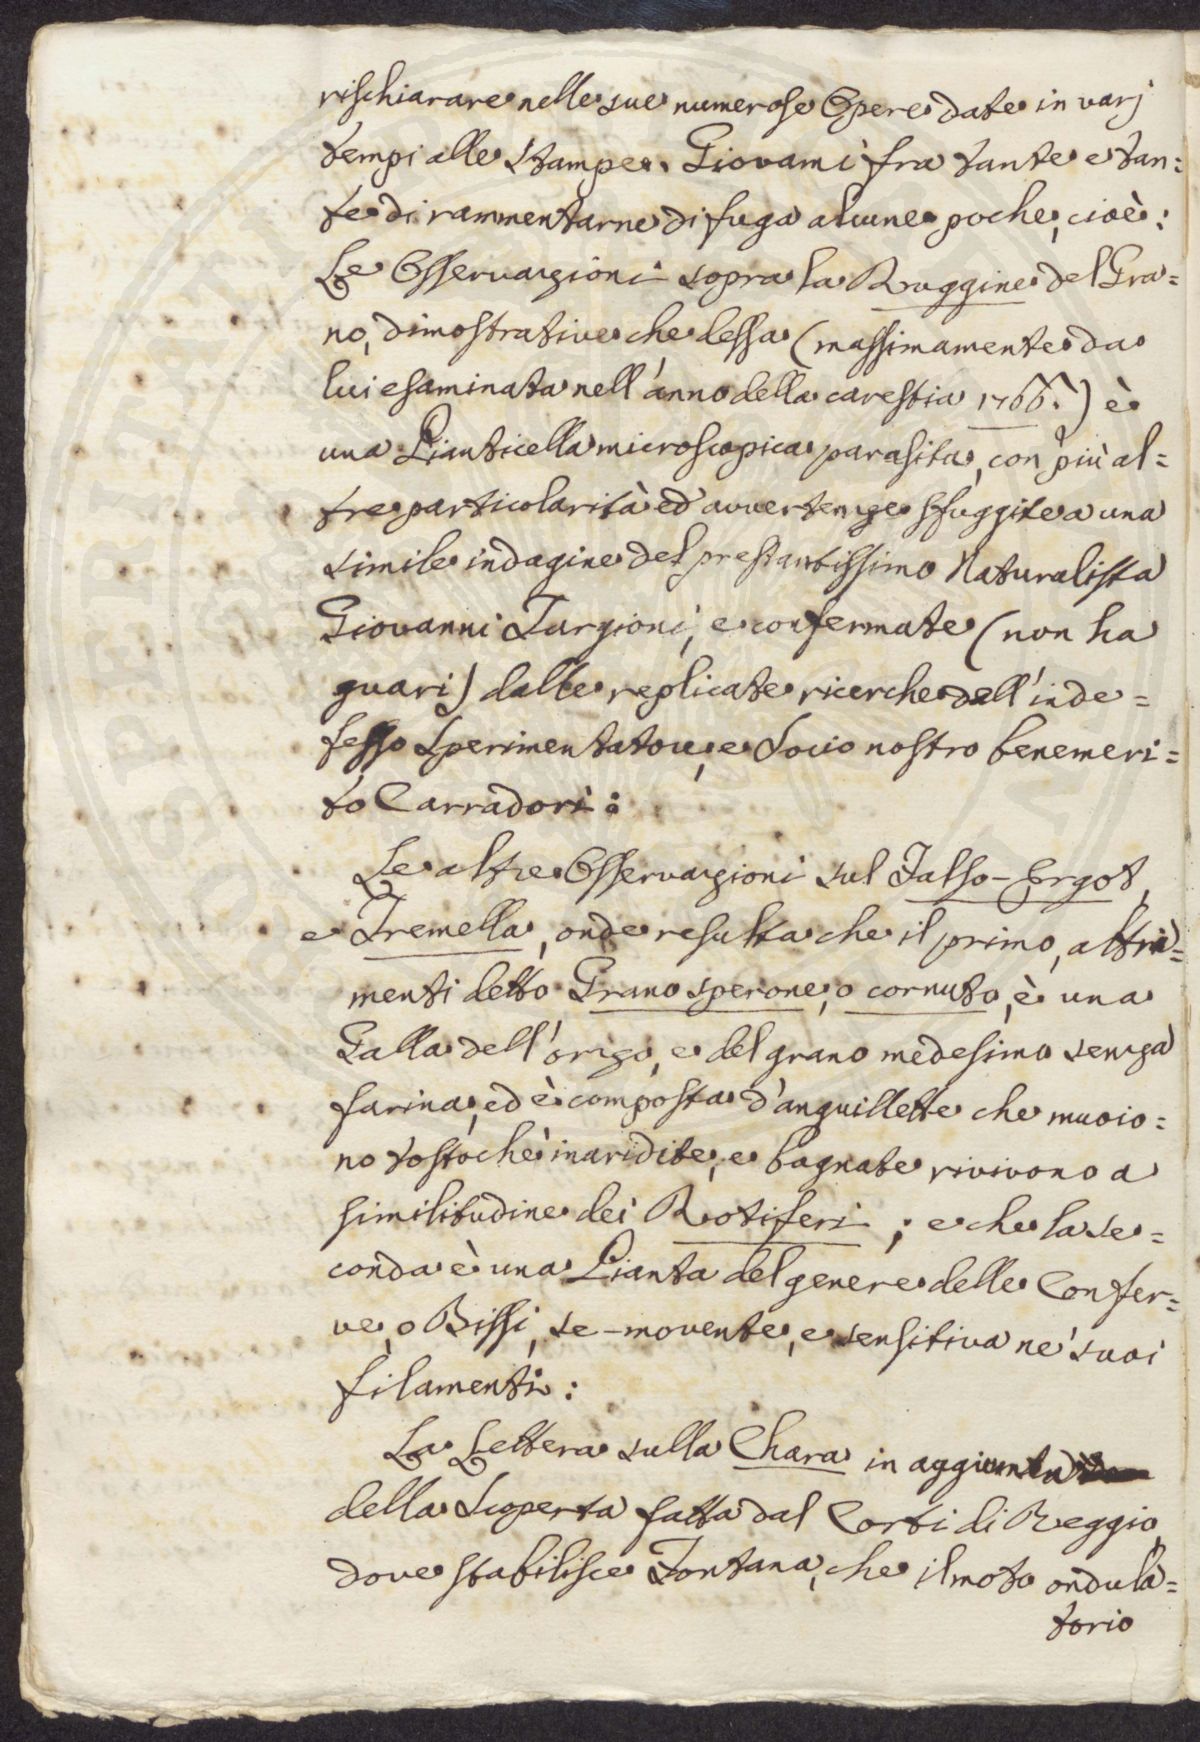 rischiarare nelle sue numerose Opere date in varj
tempi alle Stampe. Giovami fra tante e tan=
te di rammentarne di fuga alcune poche, cioè:
Le Osservazioni sopra la Ruggine del Gra=
no, dimostrative che dessa (massimamente da
lui esaminata nell'anno della carestia 1766.) è
una Pianticella microscopica parasita, con più al=
tre particolarità ed avvertenze sfuggite a una
simile indagine del prestantissimo Naturalista
Giovanni Targioni, e confermate (non ha
guari) dalle replicate ricerche dell'inde=
fesso Sperimentatore, e Socio nostro benemeri=
to Carradori:
Le altre Osservazioni sul Falso-Ergot,
e Tremella, onde resulta che il primo, altri=
menti detto Grano sperone, o cornuto, è una
Galla dell'orzo, e del grano medesimo senza
farina, ed è composta d'anguillette che muoio=
no tostochè inaridite, e bagnate rivivono a
similitudine dei Rotiferi; e che la se=
conda è una Pianta del genere delle Confer=
ve, o Bissi, se-movente, e sensitiva ne' suoi
filamenti:
La Lettera sulla Chara in aggiunta
della Scoperta fatta dal Corti di Reggio,
dove stabilisce Fontana, che il moto ondula=
torio